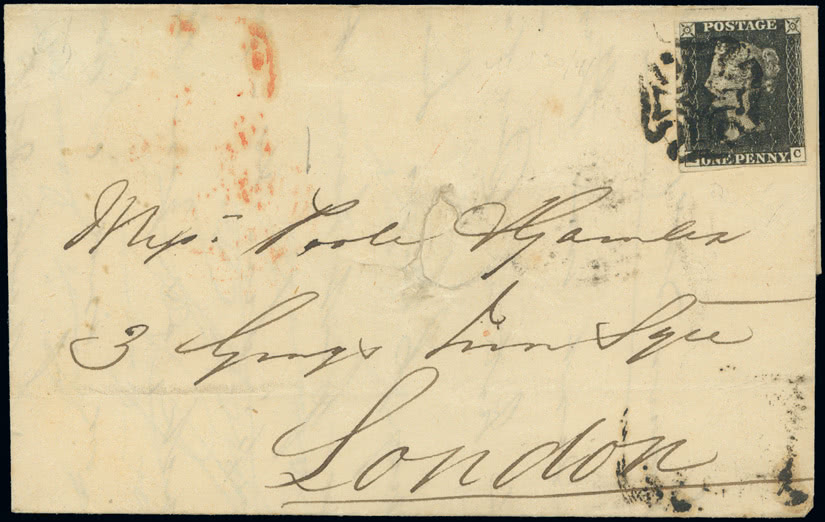 POSTAGE
ONE PENNY.
C
Messrs Poole &
3 Grays Inn Sqre
London